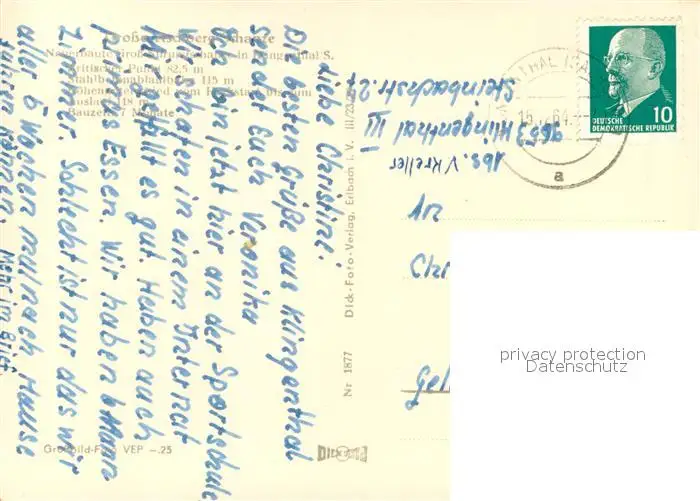 Große Aschbergschanze
Neuerbaute Großsprungschanze in Klingenthal/S.
Kritischer Punkt 82,5 m
Stahlbetonablaufturm 115 m
118 m
Bauzeit 7 Monate
Liebe Christine!
Die besten Grüße aus Klingenthal
sendet Euch Veronika
Ich bin jetzt hier an der Sportschule
Wir schlafen in einem Internat
Mir gefällt es gut. Haben auch
gutes Essen. Wir haben 6 Mann
Zimmer. Schlecht ist nur das wir
aller 6 Wochen mal nach Hause
fahren können. Mehr im Brief.
Großbild-Foto VEP -.25
Nr 1877 Dick-Foto-Verlag, Erlbach i. V. III/23/
DICK
Abs. V. Kreller
9653 Klingenthal III
Steinbachstr. 27
KLINGENTHAL (SA
64
a
DEUTSCHE
DEMOKRATISCHE REPUBLIK
10
privacy protection
Datenschutz